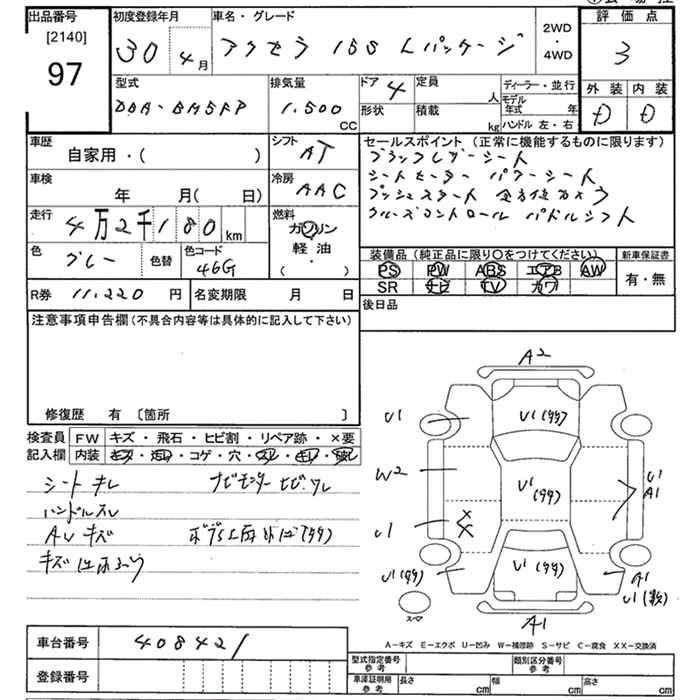 出品番号
[2140]
97
初度登録年月
30年4月
車名・グレード
アクセラ 15S Lパッケージ
2WD
4WD
評価点
3
外装 内装
D D
型式
DBA-BM5FP
排気量
1,500
CC
ドア 4
形状
定員 人
積載 kg
ディーラー・並行
モデル年式 年
ハンドル 左・右
車歴
自家用・( )
シフト
AT
車検
年 月( 日)
冷房
AAC
走行
4万2千180km
燃料
ガソリン
軽・油
( )
色
グレー
色替
色コード
46G
R券 11,220 円
名変期限 月 日
セールスポイント (正常に機能するものに限ります)
ブラックレザーシート
シートヒーター パワーシート
プッシュスタート 全方位カメラ
クルーズコントロール パドルシフト
装備品 (純正品に限り〇をつけてください)
新車保証書
PS PW ABS エアB AW
SR ナビ TV カワ
有・無
後日品
注意事項申告欄 (不具合内容等は具体的に記入して下さい)
修復歴 有 〔箇所 〕
検査員
記入欄
FW キズ・飛石・ヒビ割・リペア跡・×要
内装 キズ・汚れ・コゲ・穴・スレ・キレ・
シート キレ
ナビモニター ヒビワレ
ハンドルスレ
AW キズ
A2
U1
U1(99)
W2
U1(99)
U1
A1
U1
U1(99)
U1(99)
A1
U1(数)
スペア
A1
A-キズ E-エクボ U-凹み W-補修跡 S-サビ C-腐食 XX-交換済
車台番号 408421
登録番号
型式指定番号
参考
類別区分番号
参考
車庫証明用
参考
長さ cm
幅 cm
高さ cm